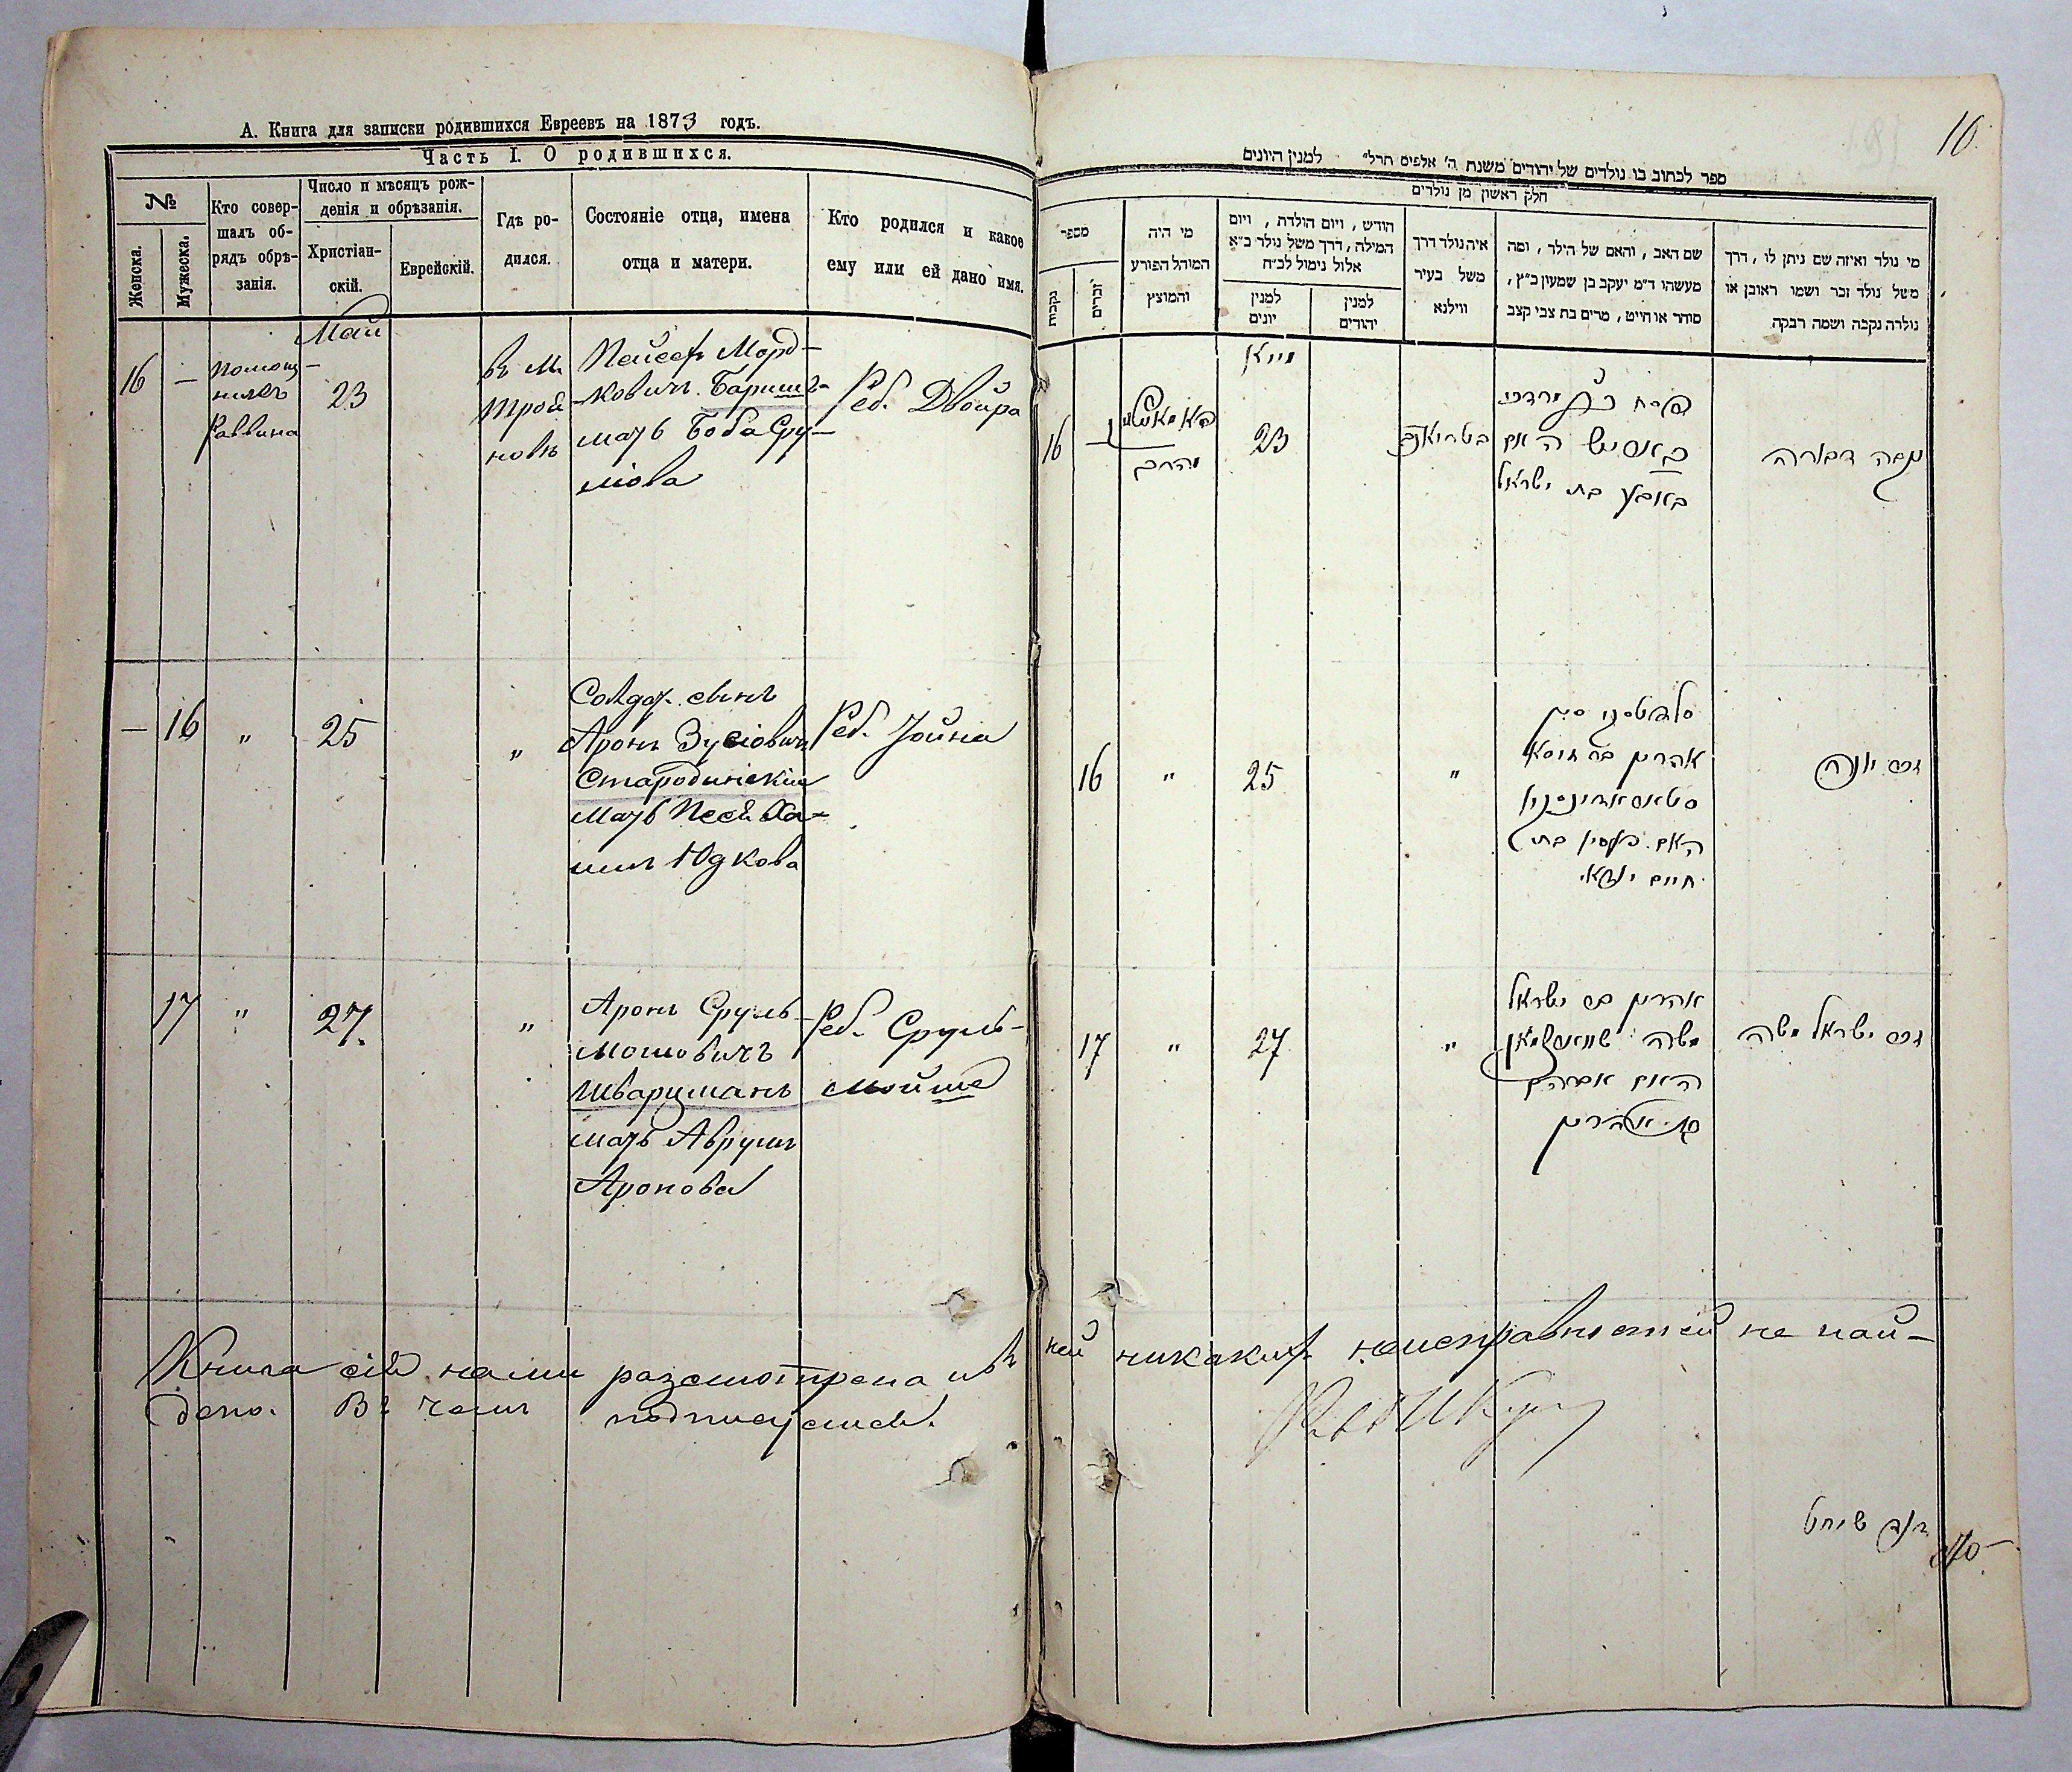 А. Книга для записки родившихся Евреевъ на 1873 годъ.
Часть I. О родившихся.
№
Женска.
Мужеска.
Кто совер-
шалъ об-
рядъ обрѣ-
занія.
Число и мѣсяцъ рож-
денія и обрѣзанія.
Христіан-
скій.
Еврейскій.
Гдѣ ро-
дился.
Состояніе отца, имена
отца и матери.
Кто родился и какое
ему или ей дано имя.
Май
16
—
Помощ-
никъ
Раввина
23
въ м.
Троя
новѣ
Пейсехъ Морд-
ковичъ
мать Боба Сру-
лiова
Реб. Двойра
—
16
"
25
"
Солдат. сынъ
Аронъ Зусіовичъ
Стародинскій
мать Песя Ха-
имъ Юдкова
Реб. Іойна
17
"
27.
"
Аронъ Сруль-
Мошовичъ
Шварцманъ
мать
Аронова
Реб. Сруль-
Мойше
Книга сія нами разсмотрена и въ ней никакихъ неисправностей не най-
дено. Въ чемъ подписуемся.
16.
ספר לכתוב בו נולדים של יהודים משנת ה' אלפים תרל" למנין היונים
חלק ראשון מן נולדים
מספר
נקבות
זכרים
מי היה
המוהל הפורע
והמוצץ
חודש, ויום הולדת, ויום
המילה, דרך משל נולד כ"א
אלול נימול לכ"ח
למנין
יונים
למנין
יהודים
איה נולד דרך
משל בעיר
ווילנא
שם האב, והאם של הילד, ומה
מעשהו ד"מ יעקב בן שמעון כ"ץ,
סוחר או חייט, מרים בת צבי קצב
מי נולד ואיזה שם ניתן לו, דרך
משל נולד זכר ושמו ראובן או
נולדה נקבה ושמה רבקה
מייא
16
23
פסח בן מרדכי
האם
בת ישראל
נקבה דבורה
16
"
25
"
אהרן בר זוסא
האם פעסיא בת
חיים יודא
זכר יונה
17
"
27
"
אהרן בר ישראל
משה שווארצמאן
האם
בת אהרן
זכר ישראל משה